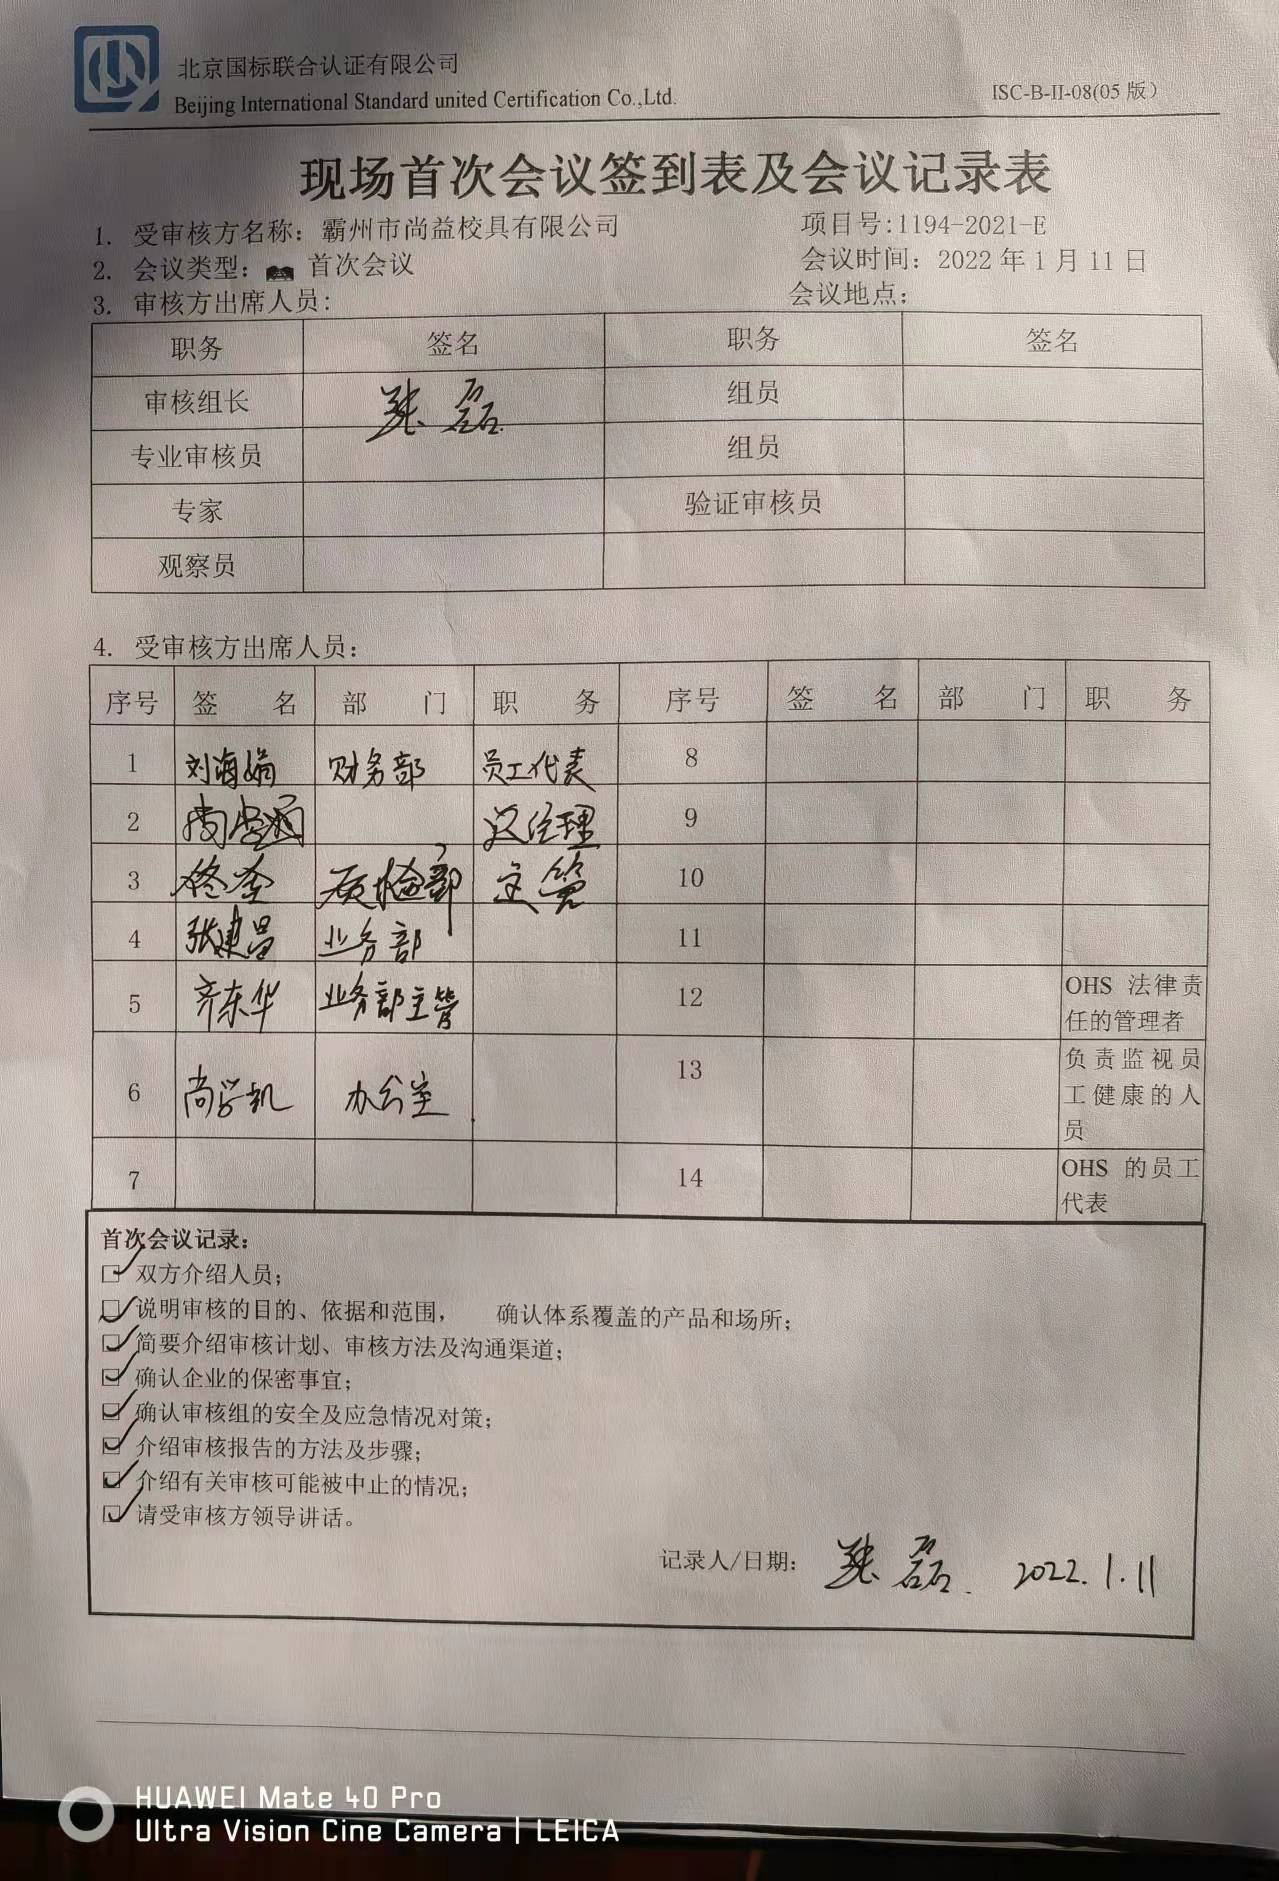 北京国标联合认证有限公司
Beijing International Standard united Certification Co.,Ltd.
ISC-B-II-08(05 版)
现场首次会议签到表及会议记录表
1. 受审核方名称：霸州市尚益校具有限公司 项目号:1194-2021-E
2. 会议类型： 首次会议 会议时间：2022 年 1 月 11 日
3. 审核方出席人员： 会议地点：
职务 签名 职务 签名
审核组长 张磊 组员
专业审核员 组员
专家 验证审核员
观察员
4. 受审核方出席人员：
序号 签 名 部 门 职 务 序号 签 名 部 门 职 务
1 刘海娟 财务部 员工代表 8
2 总经理 9
3 佟奎 质检部 主管 10
4 张建昌 业务部 11
5 齐东华 业务部主管 12 OHS 法律责
任的管理者
6 尚学凯 办公室 13 负责监视员
工健康的人
员
7 14 OHS 的员工
代表
首次会议记录：
双方介绍人员；
说明审核的目的、依据和范围， 确认体系覆盖的产品和场所；
简要介绍审核计划、审核方法及沟通渠道；
确认企业的保密事宜；
确认审核组的安全及应急情况对策；
介绍审核报告的方法及步骤；
介绍有关审核可能被中止的情况；
请受审核方领导讲话。
记录人/日期： 张磊. 2022.1.11
HUAWEI Mate 40 Pro
Ultra Vision Cine Camera | LEICA